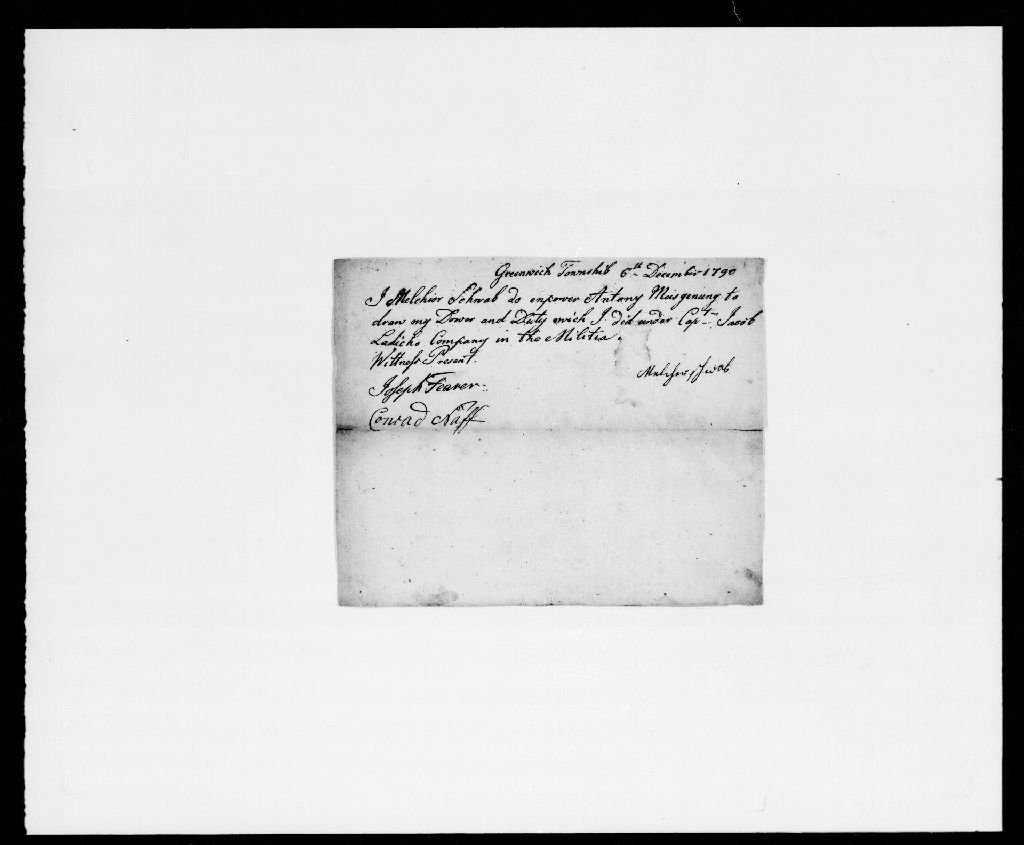 Greenwich Townshib 6th December 1790
I Melchior Schwab do enpower Antony Musgenung to
draw my Power and Duty wich I did under Capt. Jacob
Ladichs Company in the Militia.
Wittness Present
Melcher Swab
Joseph Fearer
Conrad Naff